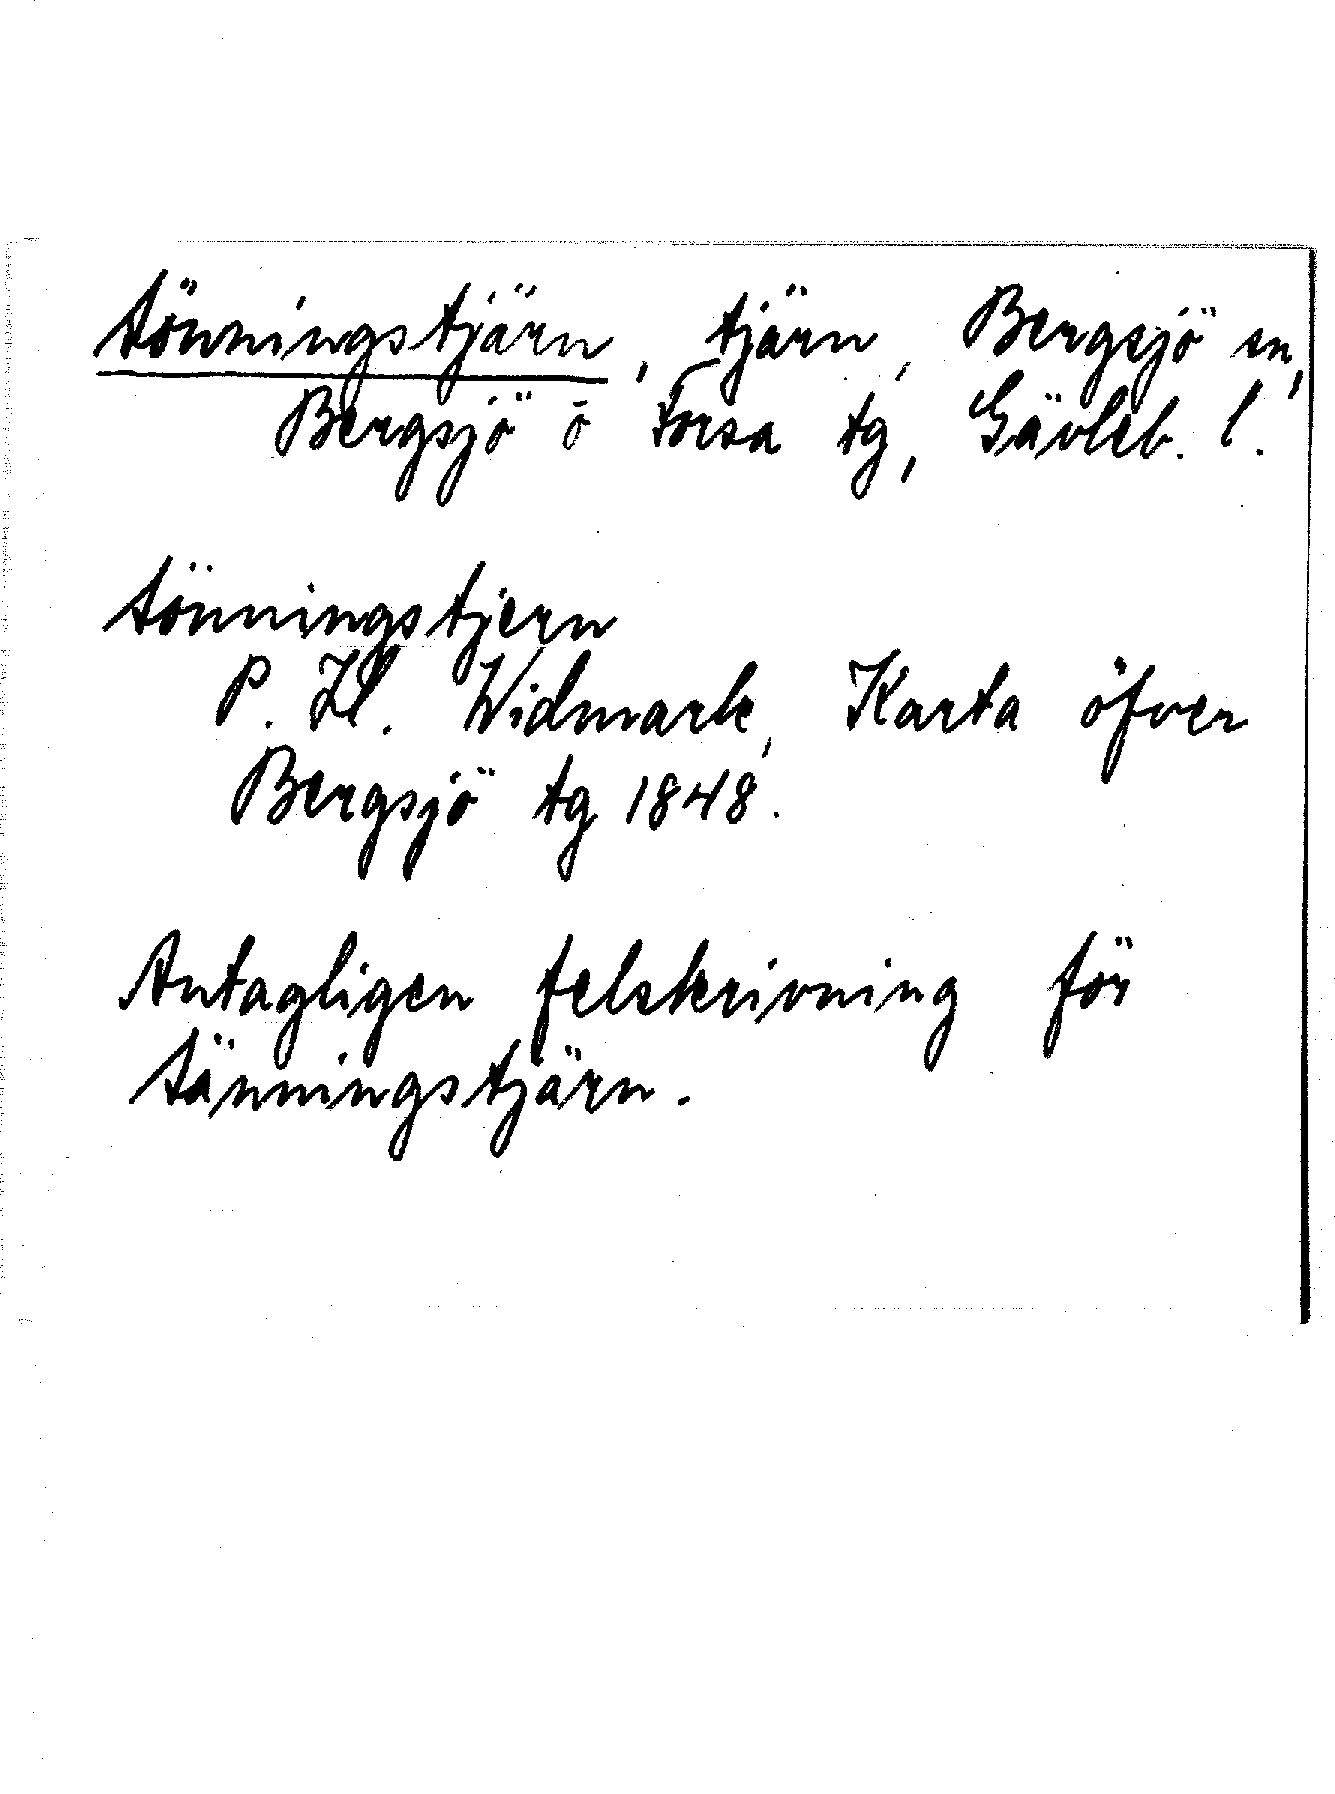 tönningstjärn, tjärn, Bergsjö sn,
Bergsjö o Forsa tg, Gävleb. l.
tönningstjern
P. H. Widmark, Karta öfver
Bergsjö tg 1848.
Antagligen felskrivning för
tänningstjärn.